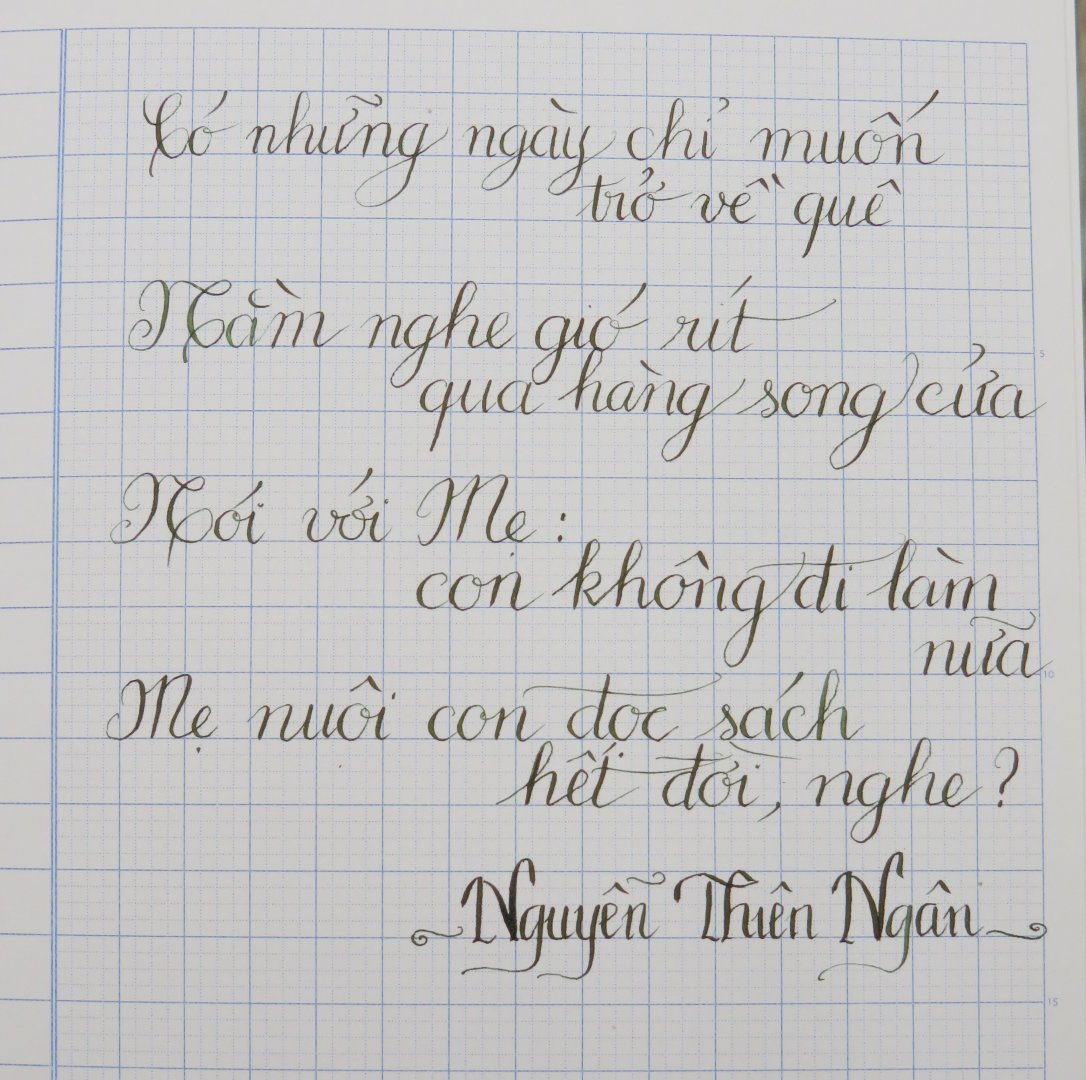 Có những ngày chỉ muốn
trở về quê
Nằm nghe gió rít
qua hàng song cửa
Nói với Mẹ:
con không đi làm
nữa
Mẹ nuôi con đọc sách
hết đời, nghe?
Nguyễn Thiên Ngân
5
10
15